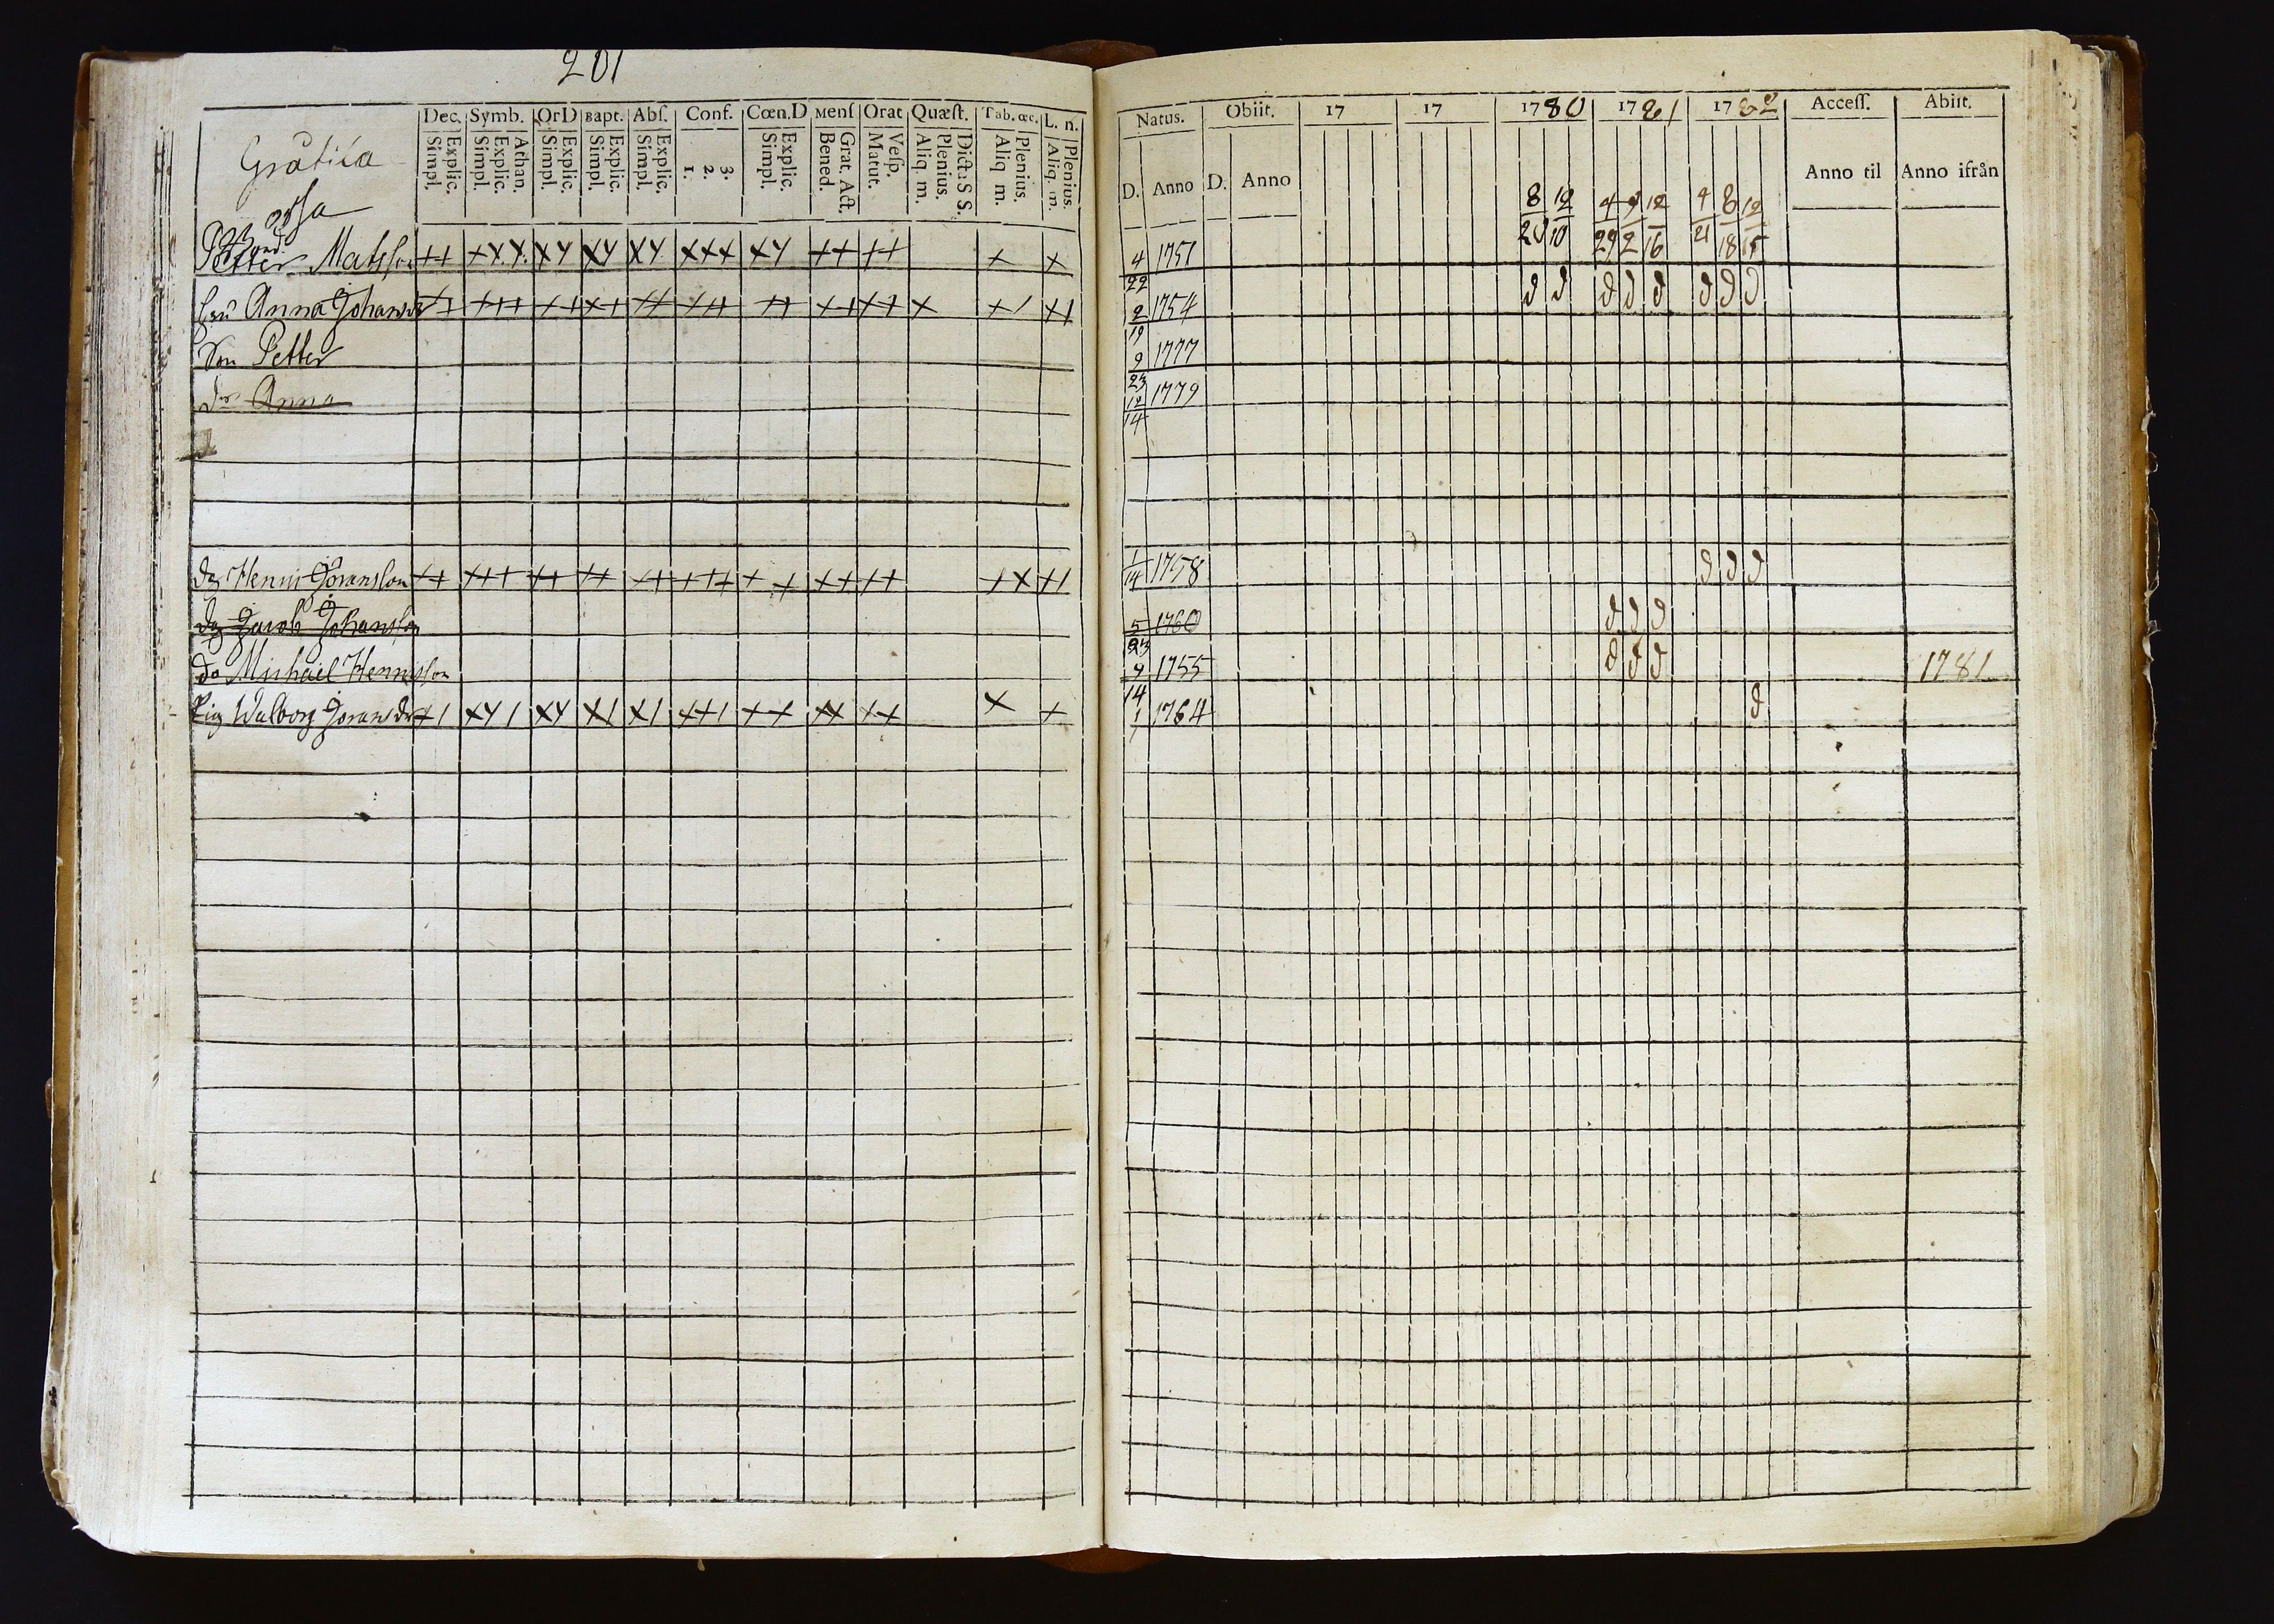 201
Dec. Symb. OrD Bapt. Abſ. Conf. Cœn.D Menſ Orat Quæſt. Tab. œc. L. n.
Explic. Simpl. Athan. Explic. Simpl. Explic. Simpl. Explic. Simpl. Explic. Simpl. 3. 2. 1. Explic. Simpl. Grat. Act. Bened. Veſp. Matut. Dict: S S. Plenius. Aliq m. Plenius. Aliq m. Plenius. Aliq. m.
Natus. Obiit. 17 17 1780 1781 1782 Acceſſ. Abiit.
D. Anno D. Anno Anno til Anno ifrån
8/20 12/10 4/29 9/2 12/16 4/21 8/18 12/15
Petter Matsson ++ +++ ++ ++ ++ +++ ++ ++ ++ + + 4/22 1751
Anna Johansdr ++ +++ ++ ++ ++ +++ ++ ++ ++ + +/ ++ 2/19 1754 d d d d d d d d
Son Petter 9/23 1777
dr Anna 12/14 1779
dg Henric Göransson ++ +++ ++ ++ ++ +++ ++ ++ ++ ++ ++ 1/14 1758 d d d
dg Jacob Johansson 5/23 1760 d d d
do Michael Hennisson 9/14 1755 d d d 1781
Pig Walborg Göransdr +/ ++/ ++ +/ +/ ++/ ++ ++ ++ + + 1/1 1764 d